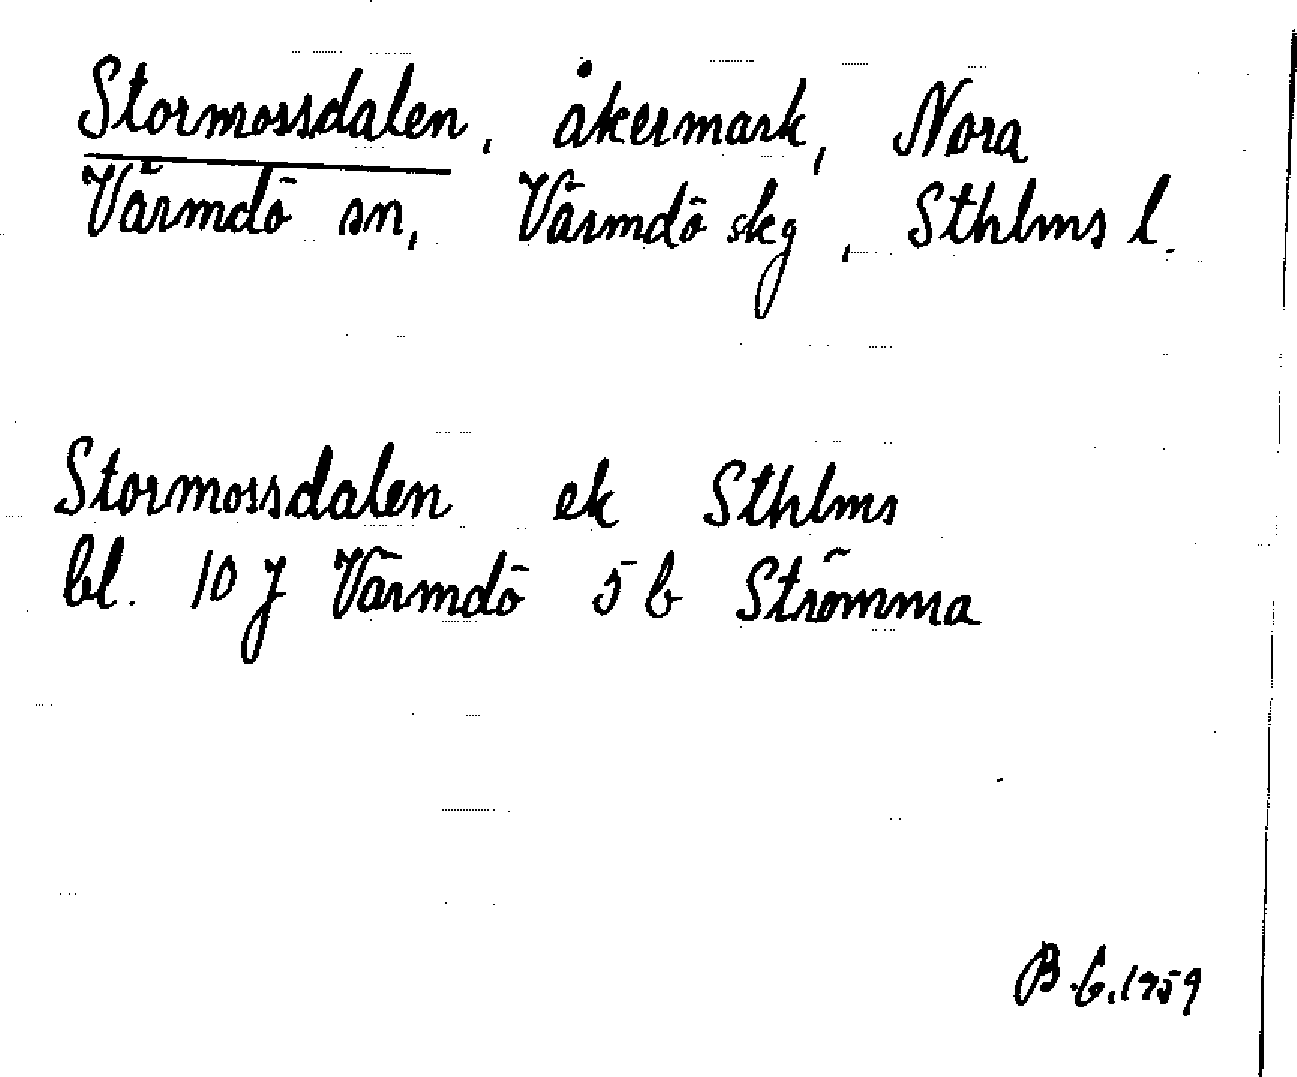 Stormossdalen, åkermark, Nora
Värmdö sn, Värmdö skg, Sthlms l.
Stormossdalen ek Sthlms
bl. 10 J Värmdö 5 b Strömma
B. G. 1959